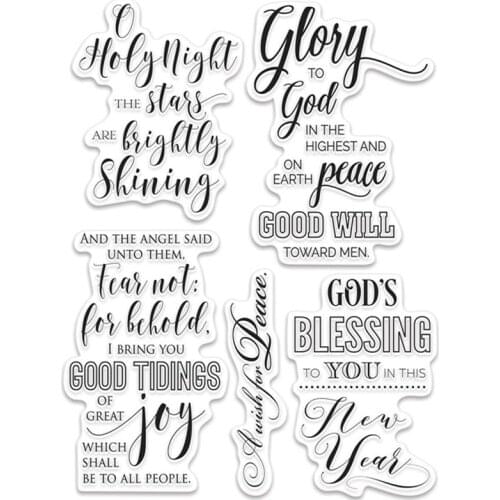 O
Holy Night
THE stars
ARE brightly
Shining
Glory
TO
God
IN THE
HIGHEST AND
ON
EARTH peace
GOOD WILL
TOWARD MEN.
AND THE ANGEL SAID
UNTO THEM,
Fear not:
for behold,
I BRING YOU
GOOD TIDINGS
OF
GREAT joy
WHICH
SHALL
BE TO ALL PEOPLE.
A wish for Peace.
GOD'S
BLESSING
TO YOU IN THIS
New
Year